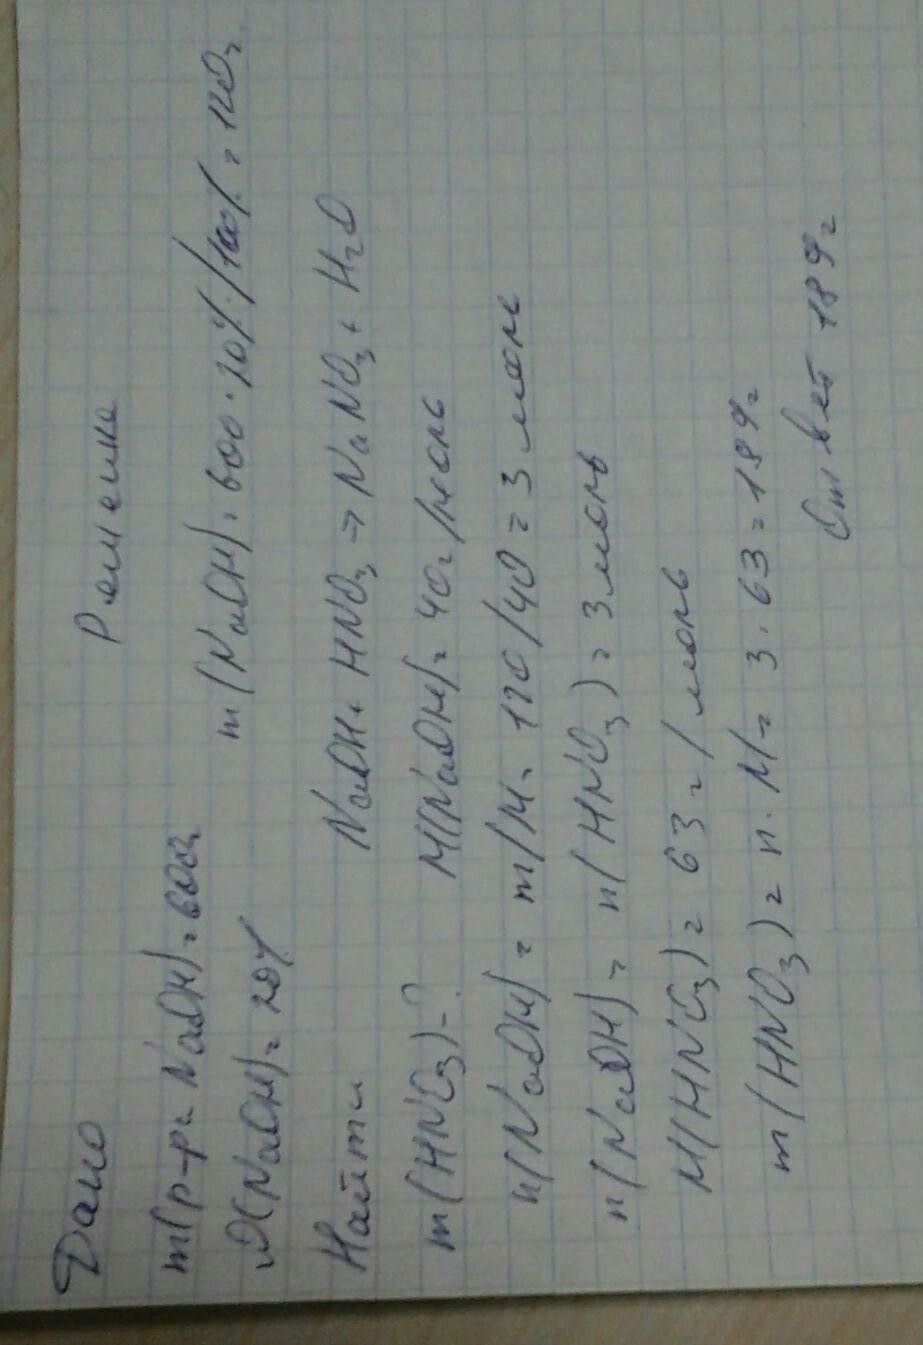 Дано
Решение
m(р-ра NaOH) = 600г
m(NaOH) = 600 · 20% / 100% = 120г
ω(NaOH) = 20%
Найти
NaOH + HNO3 → NaNO3 + H2O
m(HNO3) - ?
M(NaOH) = 40г/моль
n(NaOH) = m/M = 120/40 = 3 моль
n(NaOH) = n(HNO3) = 3 моль
M(HNO3) = 63 г/моль
m(HNO3) = n · M = 3 · 63 = 189г
Ответ 189г